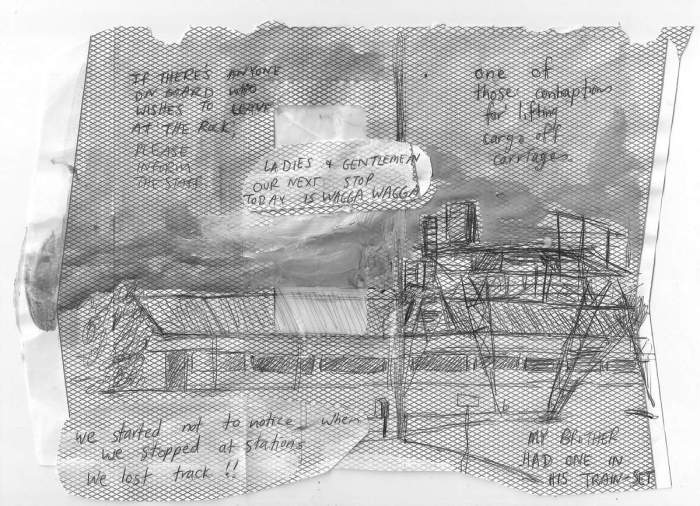 IF THERE'S ANYONE
ON BOARD WHO
WISHES TO LEAVE
AT THE ROCK,
PLEASE
INFORM
THE STAFF
one of
those contraptions
for lifting
cargo off
carriages.
LADIES & GENTLEMEAN
OUR NEXT STOP
TODAY IS WAGGA WAGGA
we started not to notice when
we stopped at stations
We lost track !!
MY BROTHER
HAD ONE IN
HIS TRAIN-SET